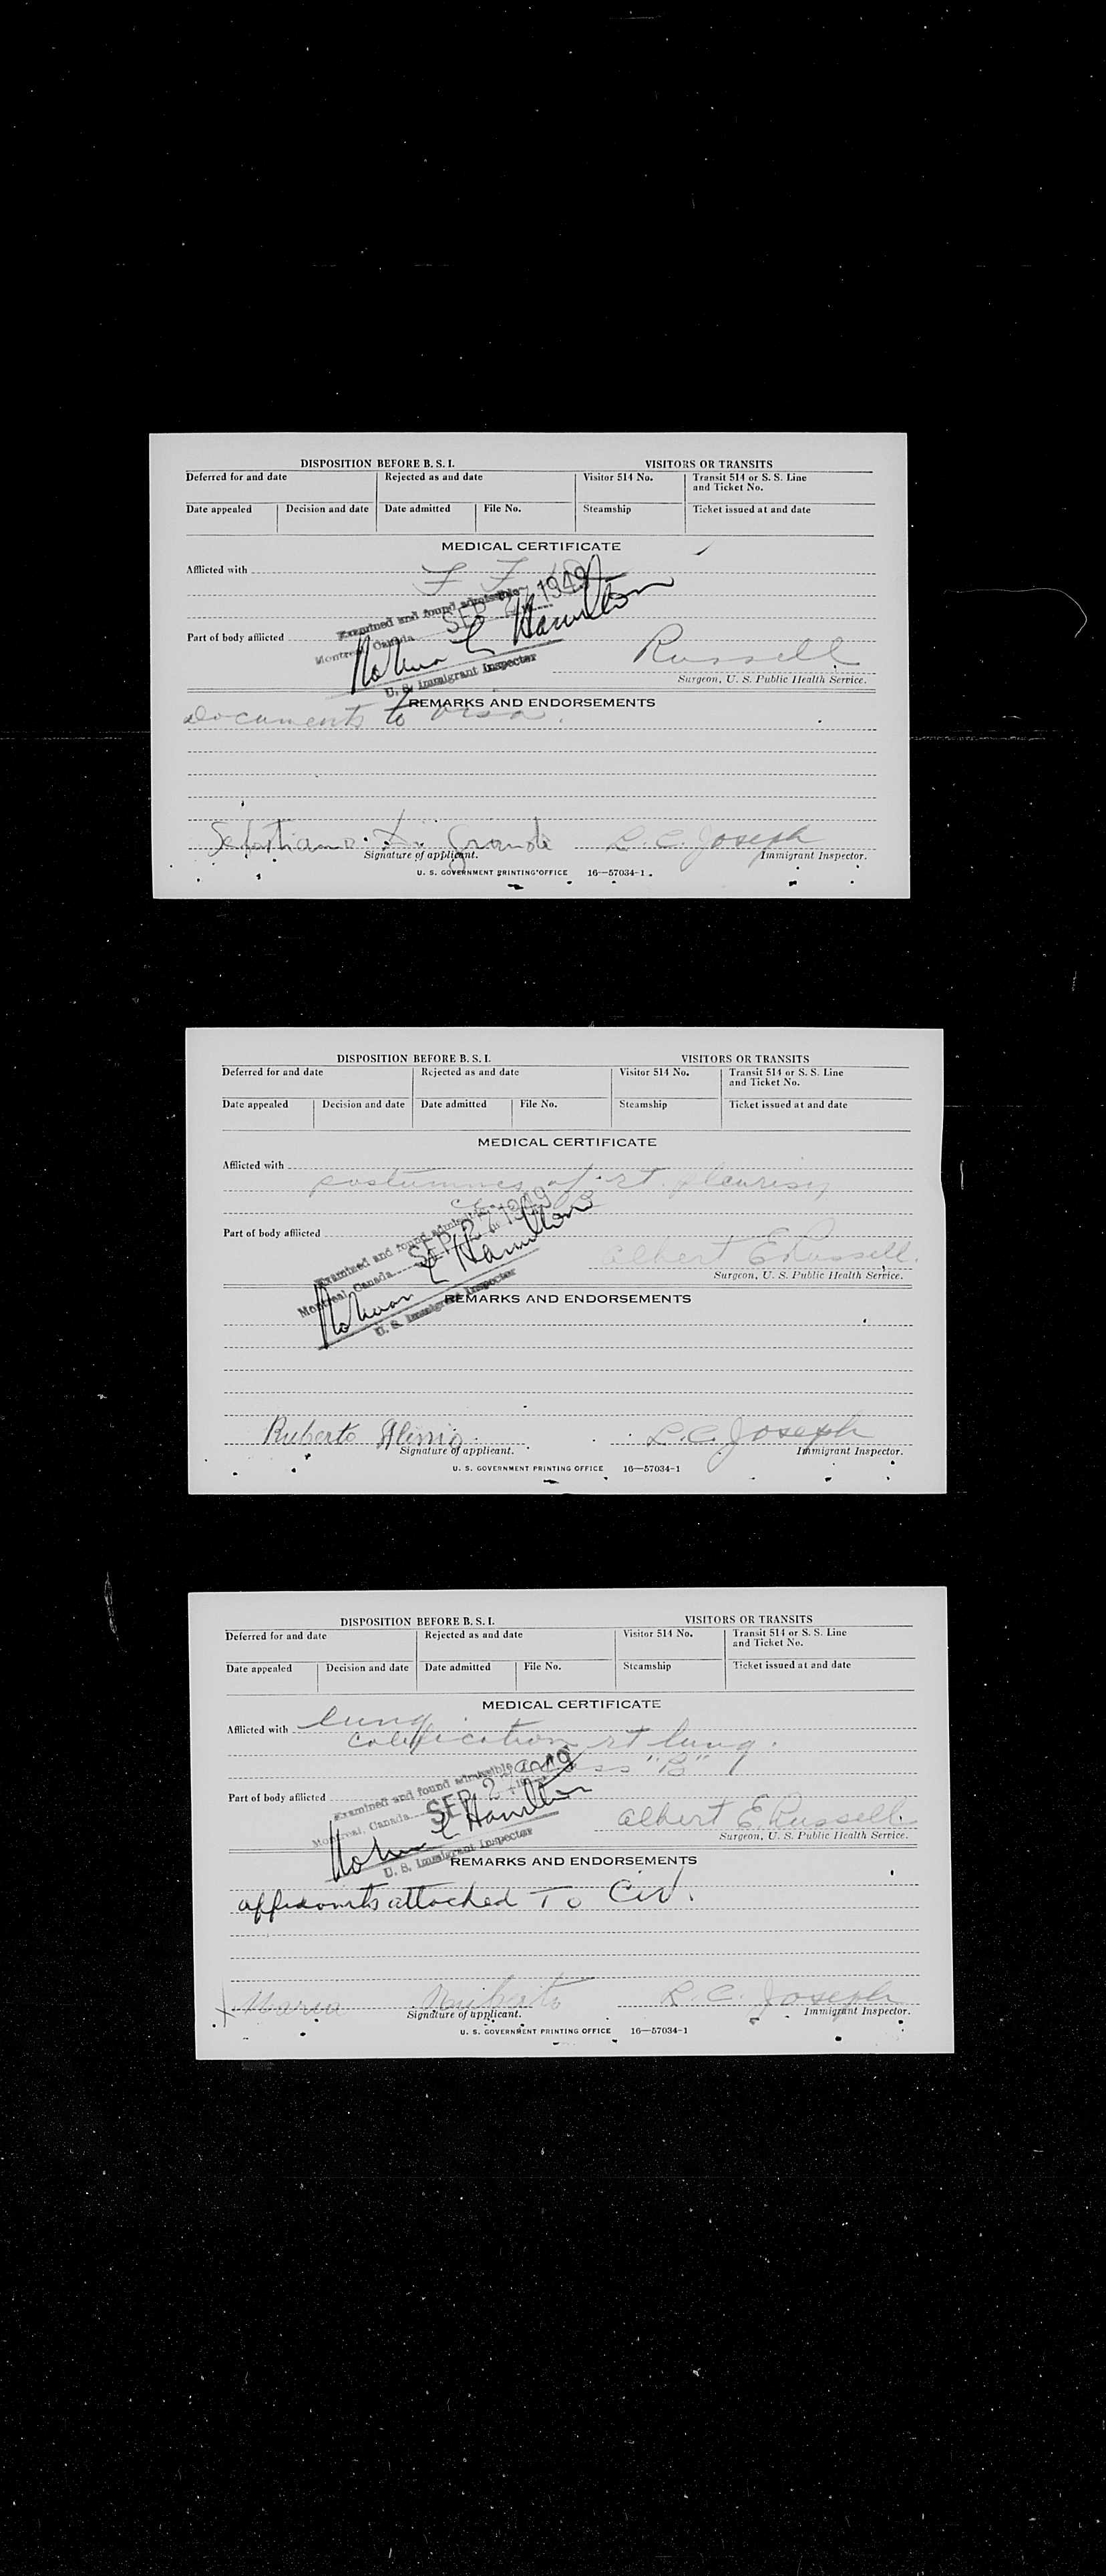 DISPOSITION BEFORE B. S. I. VISITORS OR TRANSITS
Deferred for and date Rejected as and date Visitor 514 No. Transit 514 or S. S. Line and Ticket No.
Date appealed Decision and date Date admitted File No. Steamship Ticket issued at and date
MEDICAL CERTIFICATE
Afflicted with
Examined and found admissible
Montreal, Canada SEP 27 1949
Hamilton
Part of body afflicted
U. S. Immigrant Inspector
Russell
Surgeon, U. S. Public Health Service.
REMARKS AND ENDORSEMENTS
Documents to visa.
Sebastiano Di Grande L. C. Joseph
Signature of applicant. Immigrant Inspector.
U. S. GOVERNMENT PRINTING OFFICE 16—57034-1
DISPOSITION BEFORE B. S. I. VISITORS OR TRANSITS
Deferred for and date Rejected as and date Visitor 514 No. Transit 514 or S. S. Line and Ticket No.
Date appealed Decision and date Date admitted File No. Steamship Ticket issued at and date
MEDICAL CERTIFICATE
Afflicted with
of rt. pleurisy
Examined and found admissible
Montreal, Canada SEP 27 1949
Hamilton
Part of body afflicted
U. S. Immigrant Inspector
Albert E Russell.
Surgeon, U. S. Public Health Service.
REMARKS AND ENDORSEMENTS
Ruberto L. C. Joseph
Signature of applicant. Immigrant Inspector.
U. S. GOVERNMENT PRINTING OFFICE 16—57034-1
DISPOSITION BEFORE B. S. I. VISITORS OR TRANSITS
Deferred for and date Rejected as and date Visitor 514 No. Transit 514 or S. S. Line and Ticket No.
Date appealed Decision and date Date admitted File No. Steamship Ticket issued at and date
MEDICAL CERTIFICATE
Afflicted with lung
calcification rt lung.
Class "B"
Examined and found admissible
Montreal, Canada SEP 2 1949
Hamilton
Part of body afflicted
U. S. Immigrant Inspector
Albert E. Russell.
Surgeon, U. S. Public Health Service.
REMARKS AND ENDORSEMENTS
affidavits attached To
X Maria Ruberto L. C. Joseph
Signature of applicant. Immigrant Inspector.
U. S. GOVERNMENT PRINTING OFFICE 16—57034-1